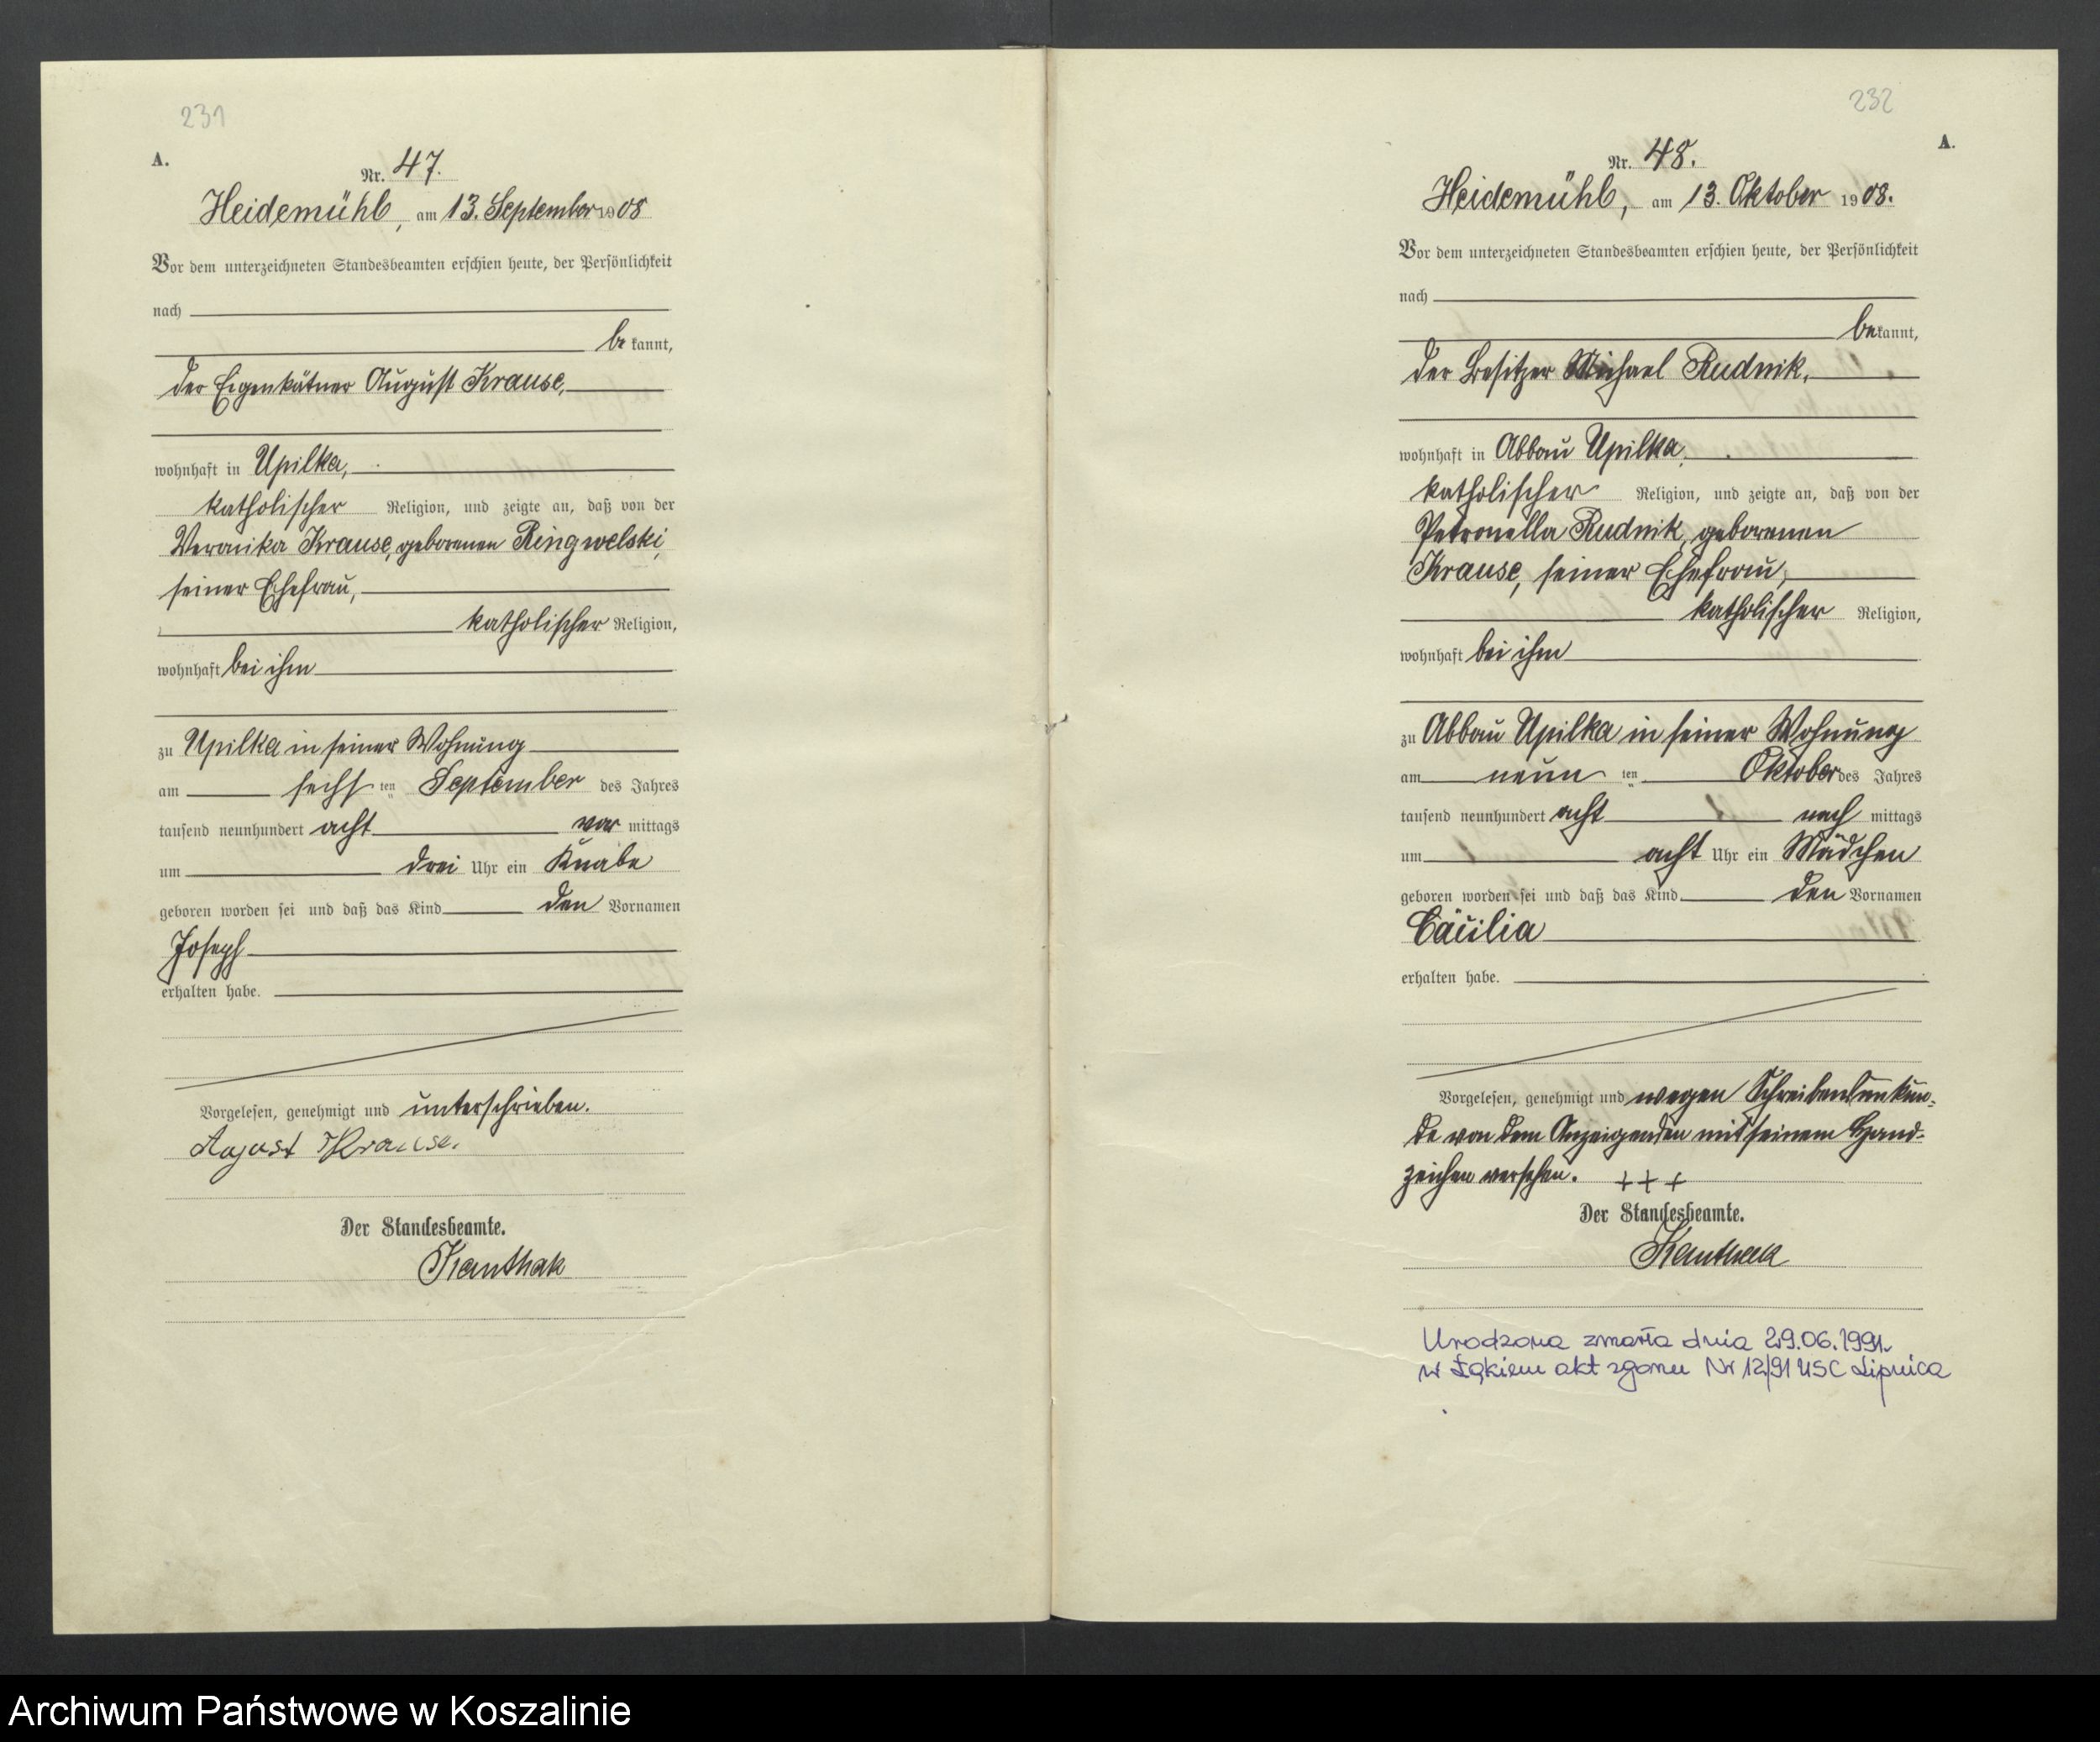 231
A.
Nr. 47.
Heidemühl, am 13. September 1908
Vor dem unterzeichneten Standesbeamten erschien heute, der Persönlichkeit
nach
bekannt,
der Eigenkätner August Krause,
wohnhaft in Upilka,
katholischer Religion, und zeigte an, daß von der
Veronika Krause, geborenen Ringwelski,
seiner Ehefrau,
katholischer Religion,
wohnhaft bei ihm
zu Upilka in seiner Wohnung
am sechsten September des Jahres
tausend neunhundert acht vormittags
um drei Uhr ein Knabe
geboren worden sei und daß das Kind den Vornamen
Joseph
erhalten habe.
Vorgelesen, genehmigt und unterschrieben.
August Krause.
Der Standesbeamte.
Kanthak
232
A.
Nr. 48.
Heidemühl, am 13. Oktober 1908.
Vor dem unterzeichneten Standesbeamten erschien heute, der Persönlichkeit
nach
bekannt,
der Besitzer Michael Rudnik,
wohnhaft in Abbau Upilka,
katholischer Religion, und zeigte an, daß von der
Petronella Rudnik, geborenen
Krause, seiner Ehefrau,
katholischer Religion,
wohnhaft bei ihm
zu Abbau Upilka in seiner Wohnung
am neunten Oktober des Jahres
tausend neunhundert acht nachmittags
um acht Uhr ein Mädchen
geboren worden sei und daß das Kind den Vornamen
Cäcilia
erhalten habe.
Vorgelesen, genehmigt und wegen Schreibensunkun-
de von dem Anzeigenden mit seinem Hand-
zeichen versehen. +++
Der Standesbeamte.
Kanthak
Urodzona zmarła dnia 29.06.1991.
w Łąkiem akt zgonu Nr 12/91 USC Lipnica
Archiwum Państwowe w Koszalinie